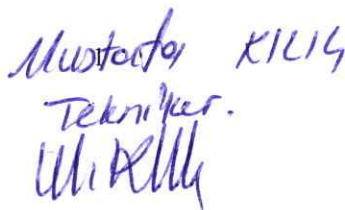 Mustafa KILIÇ
Tekniker.